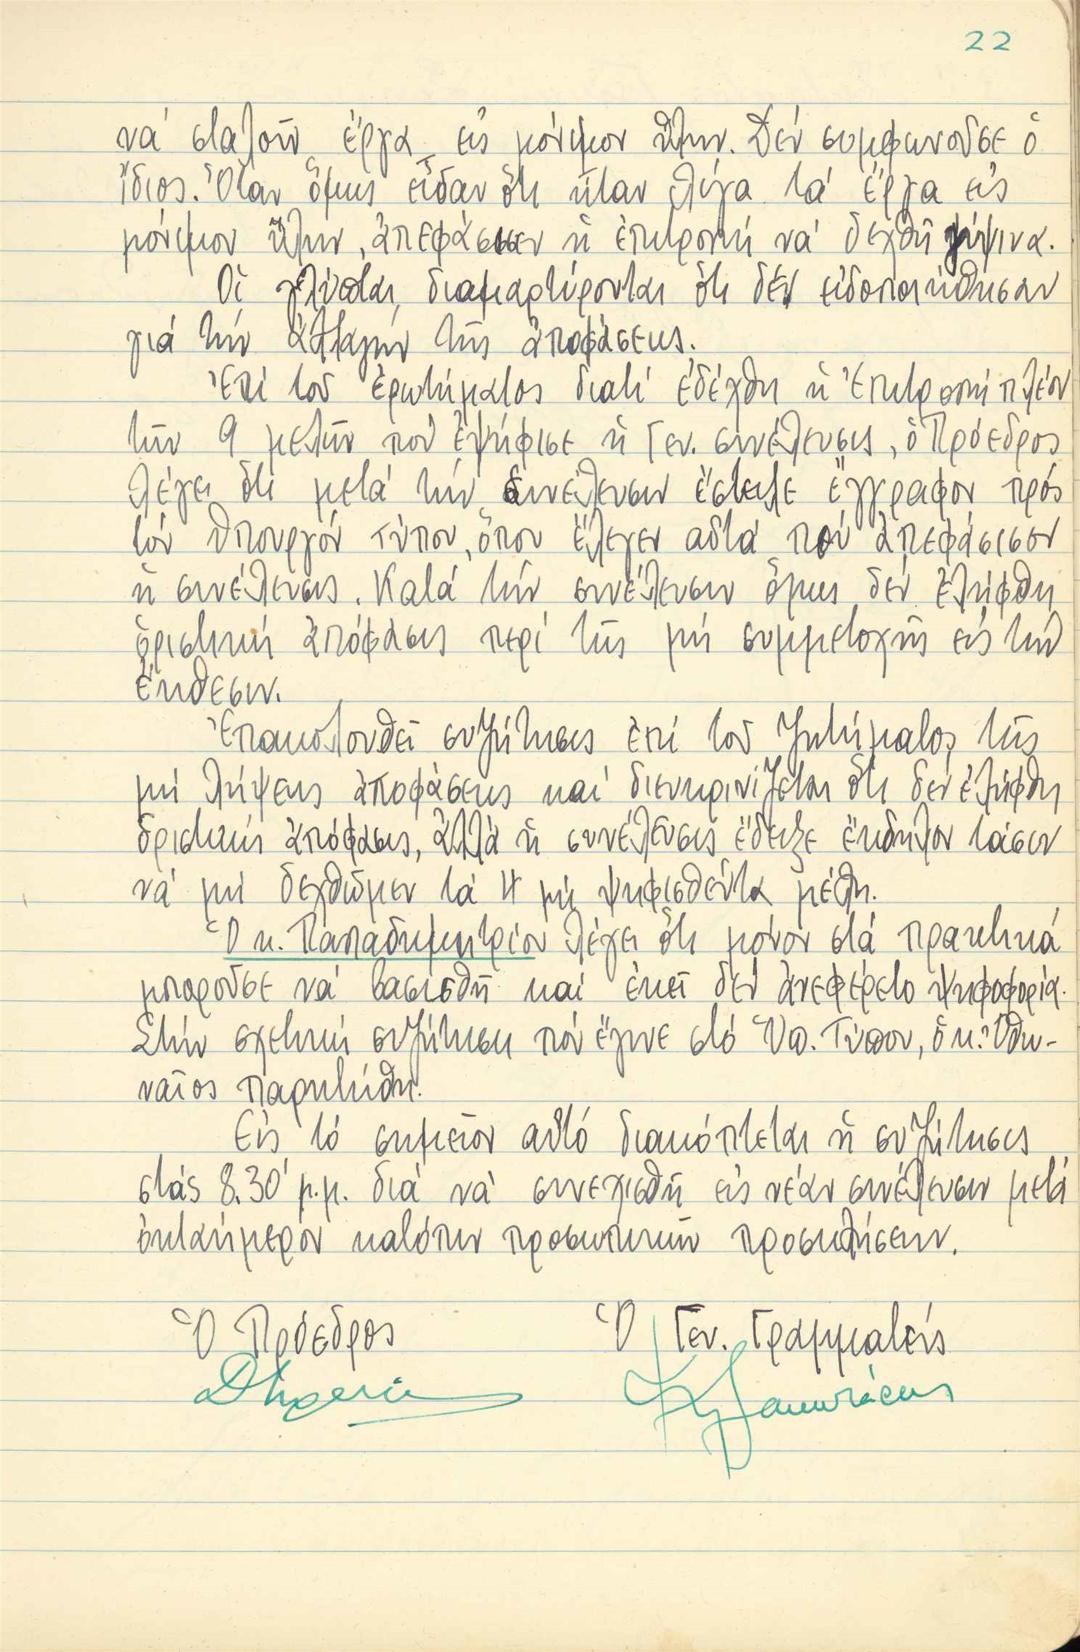 22
νά σταλοῦν ἔργα εἰς μόνιμον ὕλην. Δέν συμφωνοῦσε ὁ
ἴδιος. Ὅταν ὅμως εἶδαν ὅτι ἦταν λίγα τά ἔργα εἰς
μόνιμον ὕλην, ἀπεφάσισεν ἡ ἐπιτροπή νά δεχθῆ γύψινα.
Οἱ γλύπται διαμαρτύρονται ὅτι δέν εἰδοποιήθησαν
γιά τήν ἀλλαγήν τῆς ἀποφάσεως.
Ἐπί τοῦ ἐρωτήματος διατί ἐδέχθη ἡ Ἐπιτροπή πλέον
τῶν 9 μελῶν πού ἐψήφισε ἡ Γεν. συνέλευσις, ὁ Πρόεδρος
λέγει ὅτι μετά τήν συνέλευσιν ἔστειλε ἔγγραφον πρός
τόν Ὑπουργόν Τύπου, ὅπου ἔλεγεν αὐτά πού ἀπεφάσισεν
ἡ συνέλευσις. Κατά τήν συνέλευσιν ὅμως δέν ἐλήφθη
ὁριστική ἀπόφασις περί τῆς μή συμμετοχῆς εἰς τήν
ἔκθεσιν.
Ἐπακολουθεῖ συζήτησις ἐπί τοῦ ζητήματος τῆς
μή λήψεως ἀποφάσεως καί διευκρινίζεται ὅτι δέν ἐλήφθη
ὁριστικής ἀπόφασις, ἀλλά ἡ συνέλευσις ἔδειξε ἔκδηλον τάσιν
νά μή δεχθῶμεν τά 4 μή ψηφισθέντα μέλη.
Ὁ κ. Παπαδημητρίου λέγει ὅτι μόνον στά πρακτικά
μποροῦσε νά βασισθῆ καί ἐκεῖ δέν ἀνεφέρετο ψηφοφορία.
Στήν σχετική συζήτηση πού ἔγινε στό Ὑπ. Τύπου, ὁ κ. Ὀθω-
ναῖος παρητήθη.
Εἰς τό σημεῖον αὐτό διακόπτεται ἡ συζήτησις
στάς 8.30' μ.μ. διά νά συνεχισθῆ εἰς νέαν συνέλευσιν μετά
ὀκταήμερον κατόπιν προσωπικῶν προσκλήσεων.
Ὁ Πρόεδρος Ὁ Γεν. Γραμματεύς